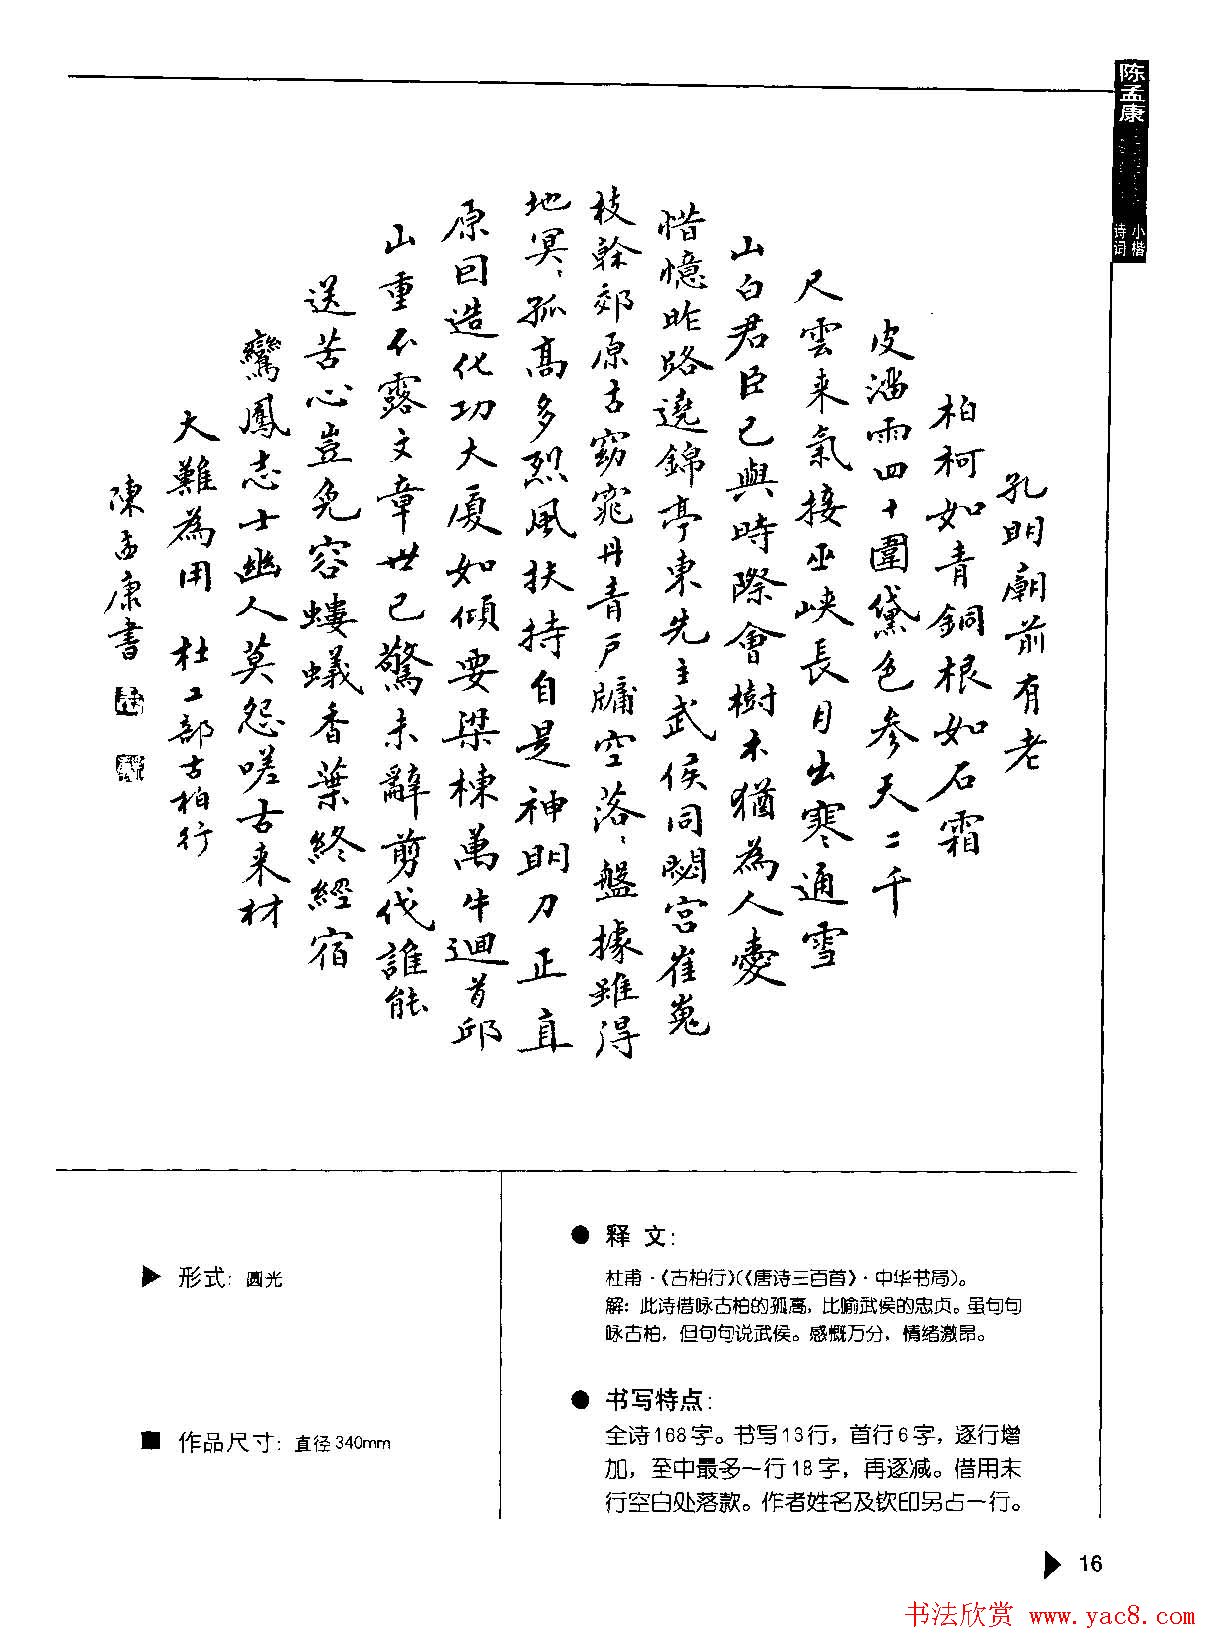 陈孟康
小楷
诗词
孔明廟前有老
柏柯如青銅根如石霜
皮溜雨四十圍黛色參天二千
尺雲来氣接巫峡長月出寒通雪
山白君臣已與時際會樹木猶為人愛
惜憶昨路遶錦亭東先主武侯同閟宮崔嵬
枝幹郊原古窈窕丹青戶牖空落、盤據雖得
地冥、孤高多烈風扶持自是神明力正直
原囙造化功大厦如傾要梁棟萬牛迴首邱
山重不露文章世已驚未辭剪伐誰能
送苦心豈免容螻蟻香葉終經宿
鸞鳳志士幽人莫怨嗟古来材
大難為用 杜工部古柏行
陳孟康書
▶ 形式: 圆光
■ 作品尺寸: 直径340mm
● 释 文:
杜甫·《古柏行》(《唐诗三百首》·中华书局)。
解: 此诗借咏古柏的孤高, 比喻武侯的忠贞。虽句句
咏古柏, 但句句说武侯。感慨万分, 情绪激昂。
● 书写特点:
全诗168字。书写13行, 首行6字, 逐行增
加, 至中最多一行18字, 再逐减。借用末
行空白处落款。作者姓名及钦印另占一行。
▶ 16
书法欣赏 www.yac8.com